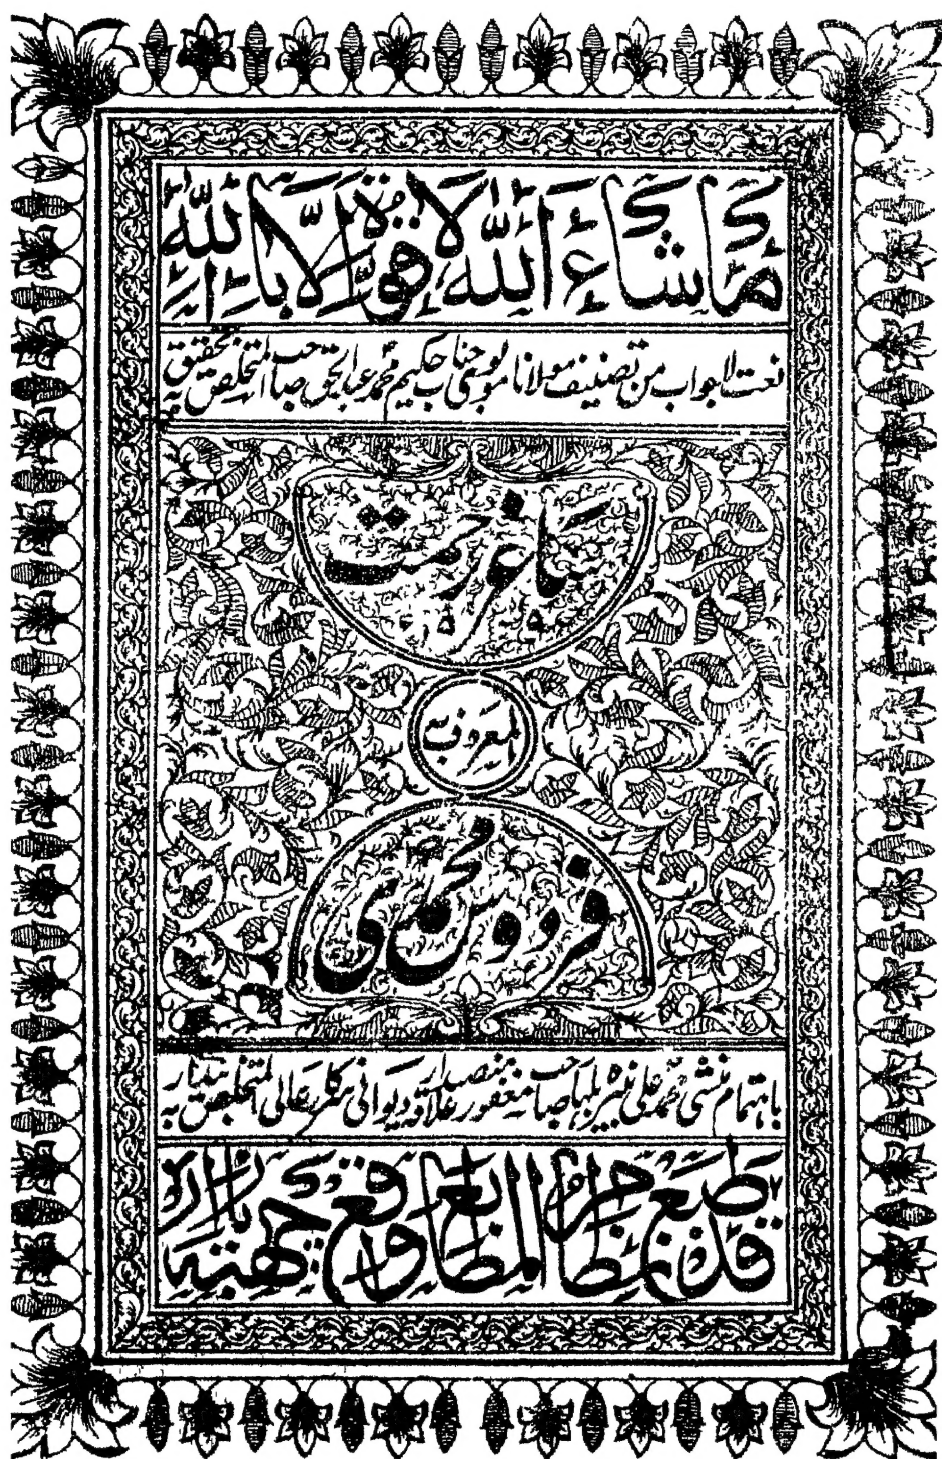 ما شاء الله لا قوة الا بالله
نعت لاجواب من تصنیف مولانا مولوی جناب حکیم محمد عبد الحق صاحب المتخلص بہ تحقیق
ساغر رحمت
المعروف بہ
فردوس محمدی
باہتمام منشی محمد علی صاحب مغفور علاقہ دیوانی سرکار عالی المتخلص بہ
قد طبع فی مطبع المطابع واقع چھتہ بازار